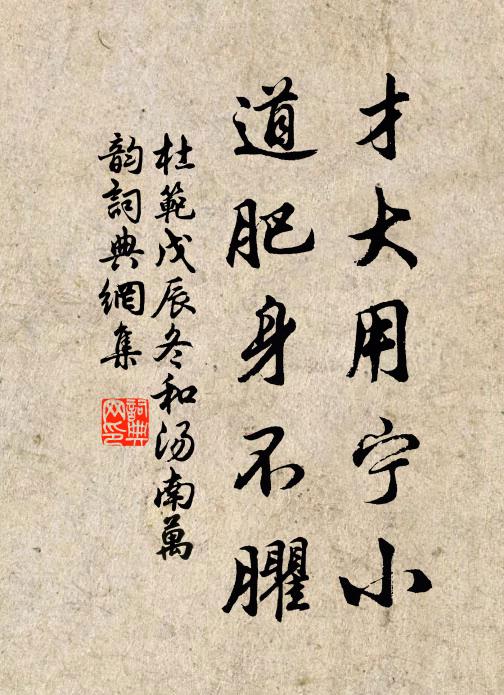 才大用宁小
道肥身不臞
杜範戊辰冬和汤南萬
韵詞典網集
詞典网印